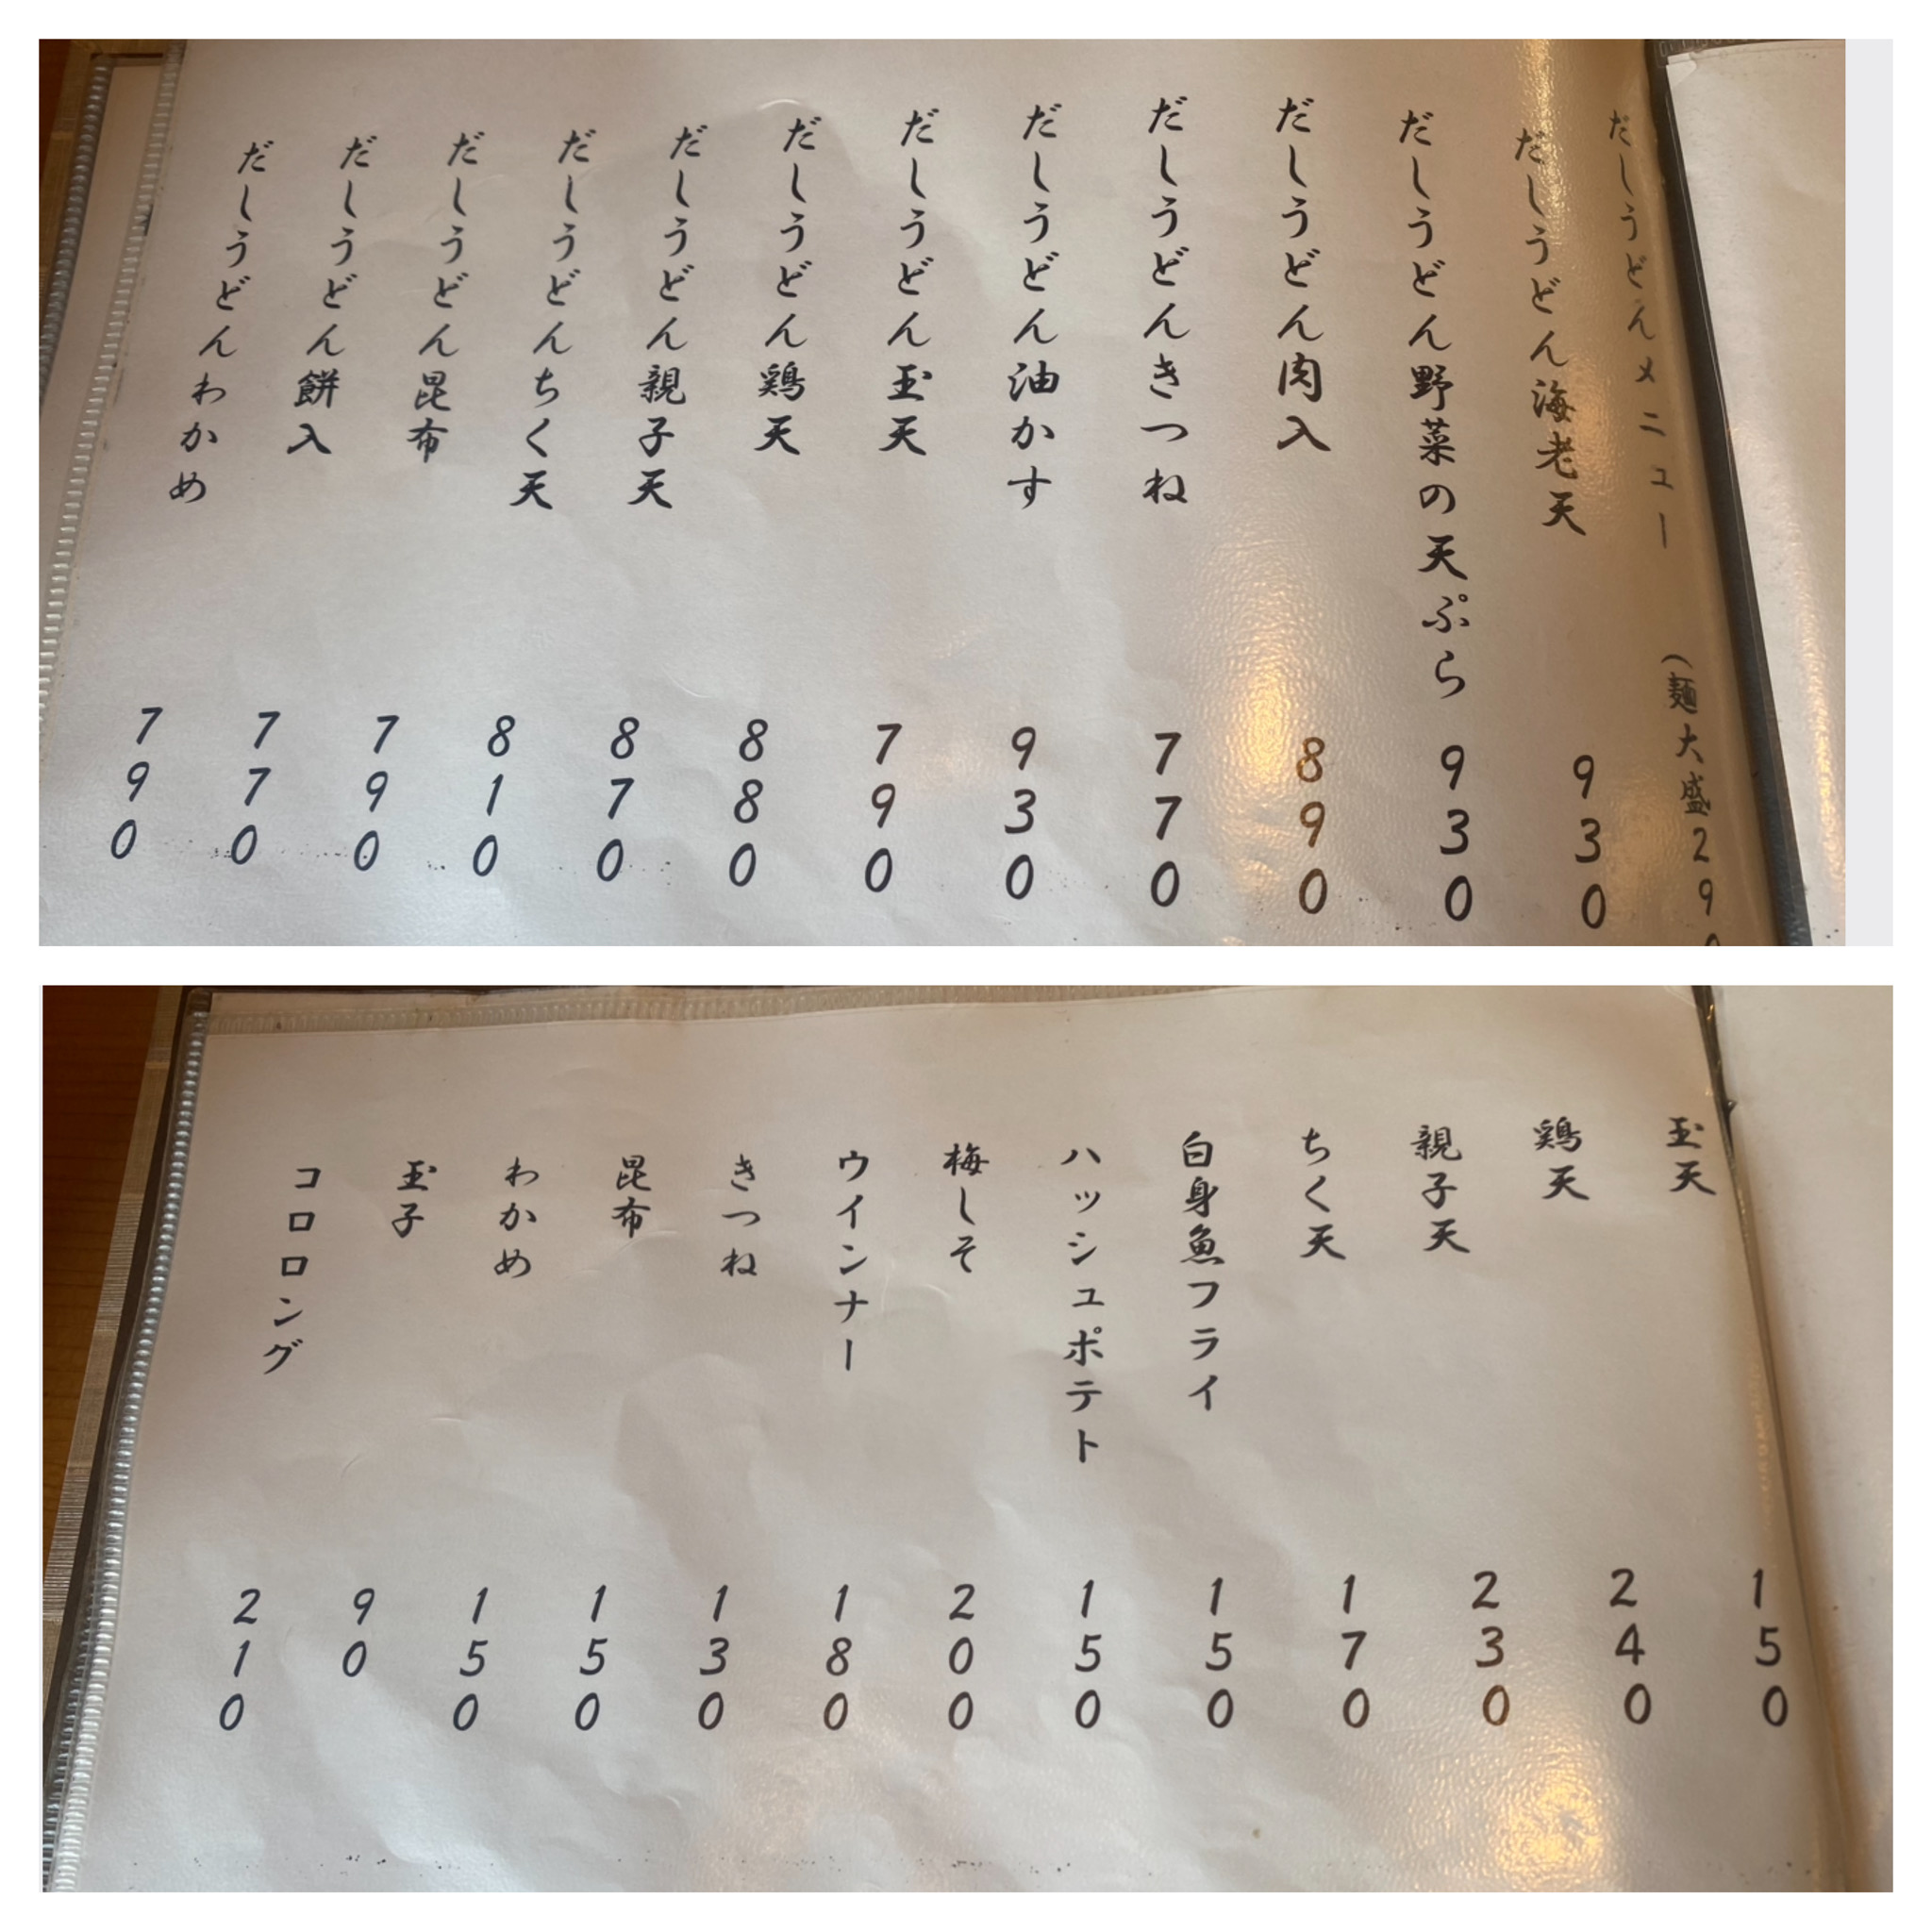 だしうどんメニュー (麺大盛290
だしうどん海老天 930
だしうどん野菜の天ぷら 930
だしうどん肉入 890
だしうどんきつね 770
だしうどん油かす 930
だしうどん玉天 790
だしうどん鶏天 880
だしうどん親子天 870
だしうどんちく天 810
だしうどん昆布 790
だしうどん餅入 770
だしうどんわかめ 790
玉天 150
鶏天 240
親子天 230
ちく天 170
白身魚フライ 150
ハッシュポテト 150
梅しそ 200
ウインナー 180
きつね 130
昆布 150
わかめ 150
玉子 90
コロロング 210